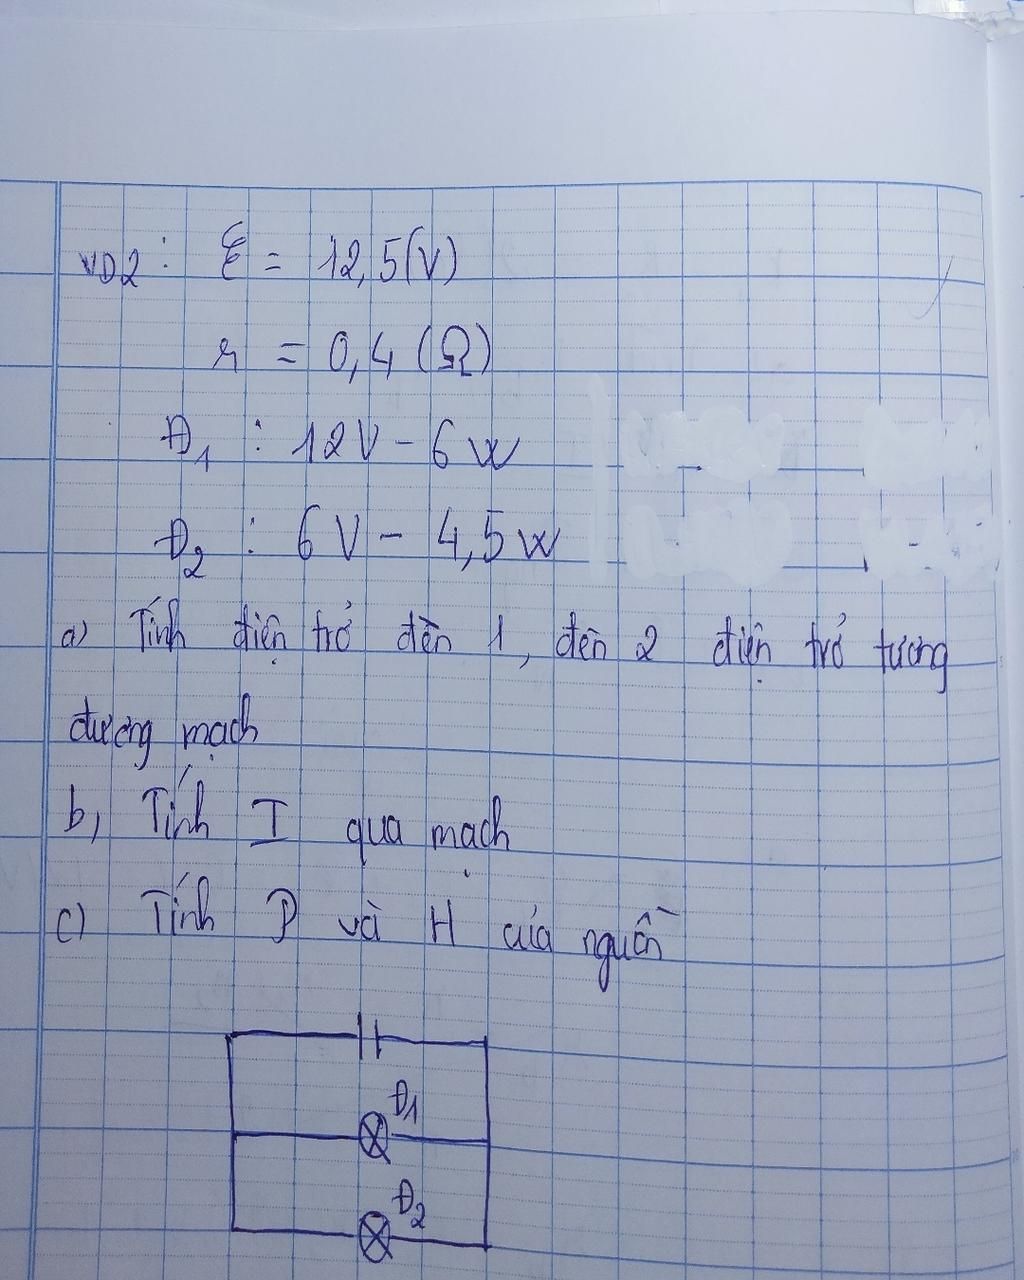 VD2: ℰ = 12,5(V)
r = 0,4 (Ω)
Đ1 : 12V - 6W
Đ2 : 6V - 4,5W
a) Tính điện trở đèn 1, đèn 2 điện trở tương
đương mạch
b, Tính I qua mạch
c) Tính P và H của nguồn
Đ1
Đ2